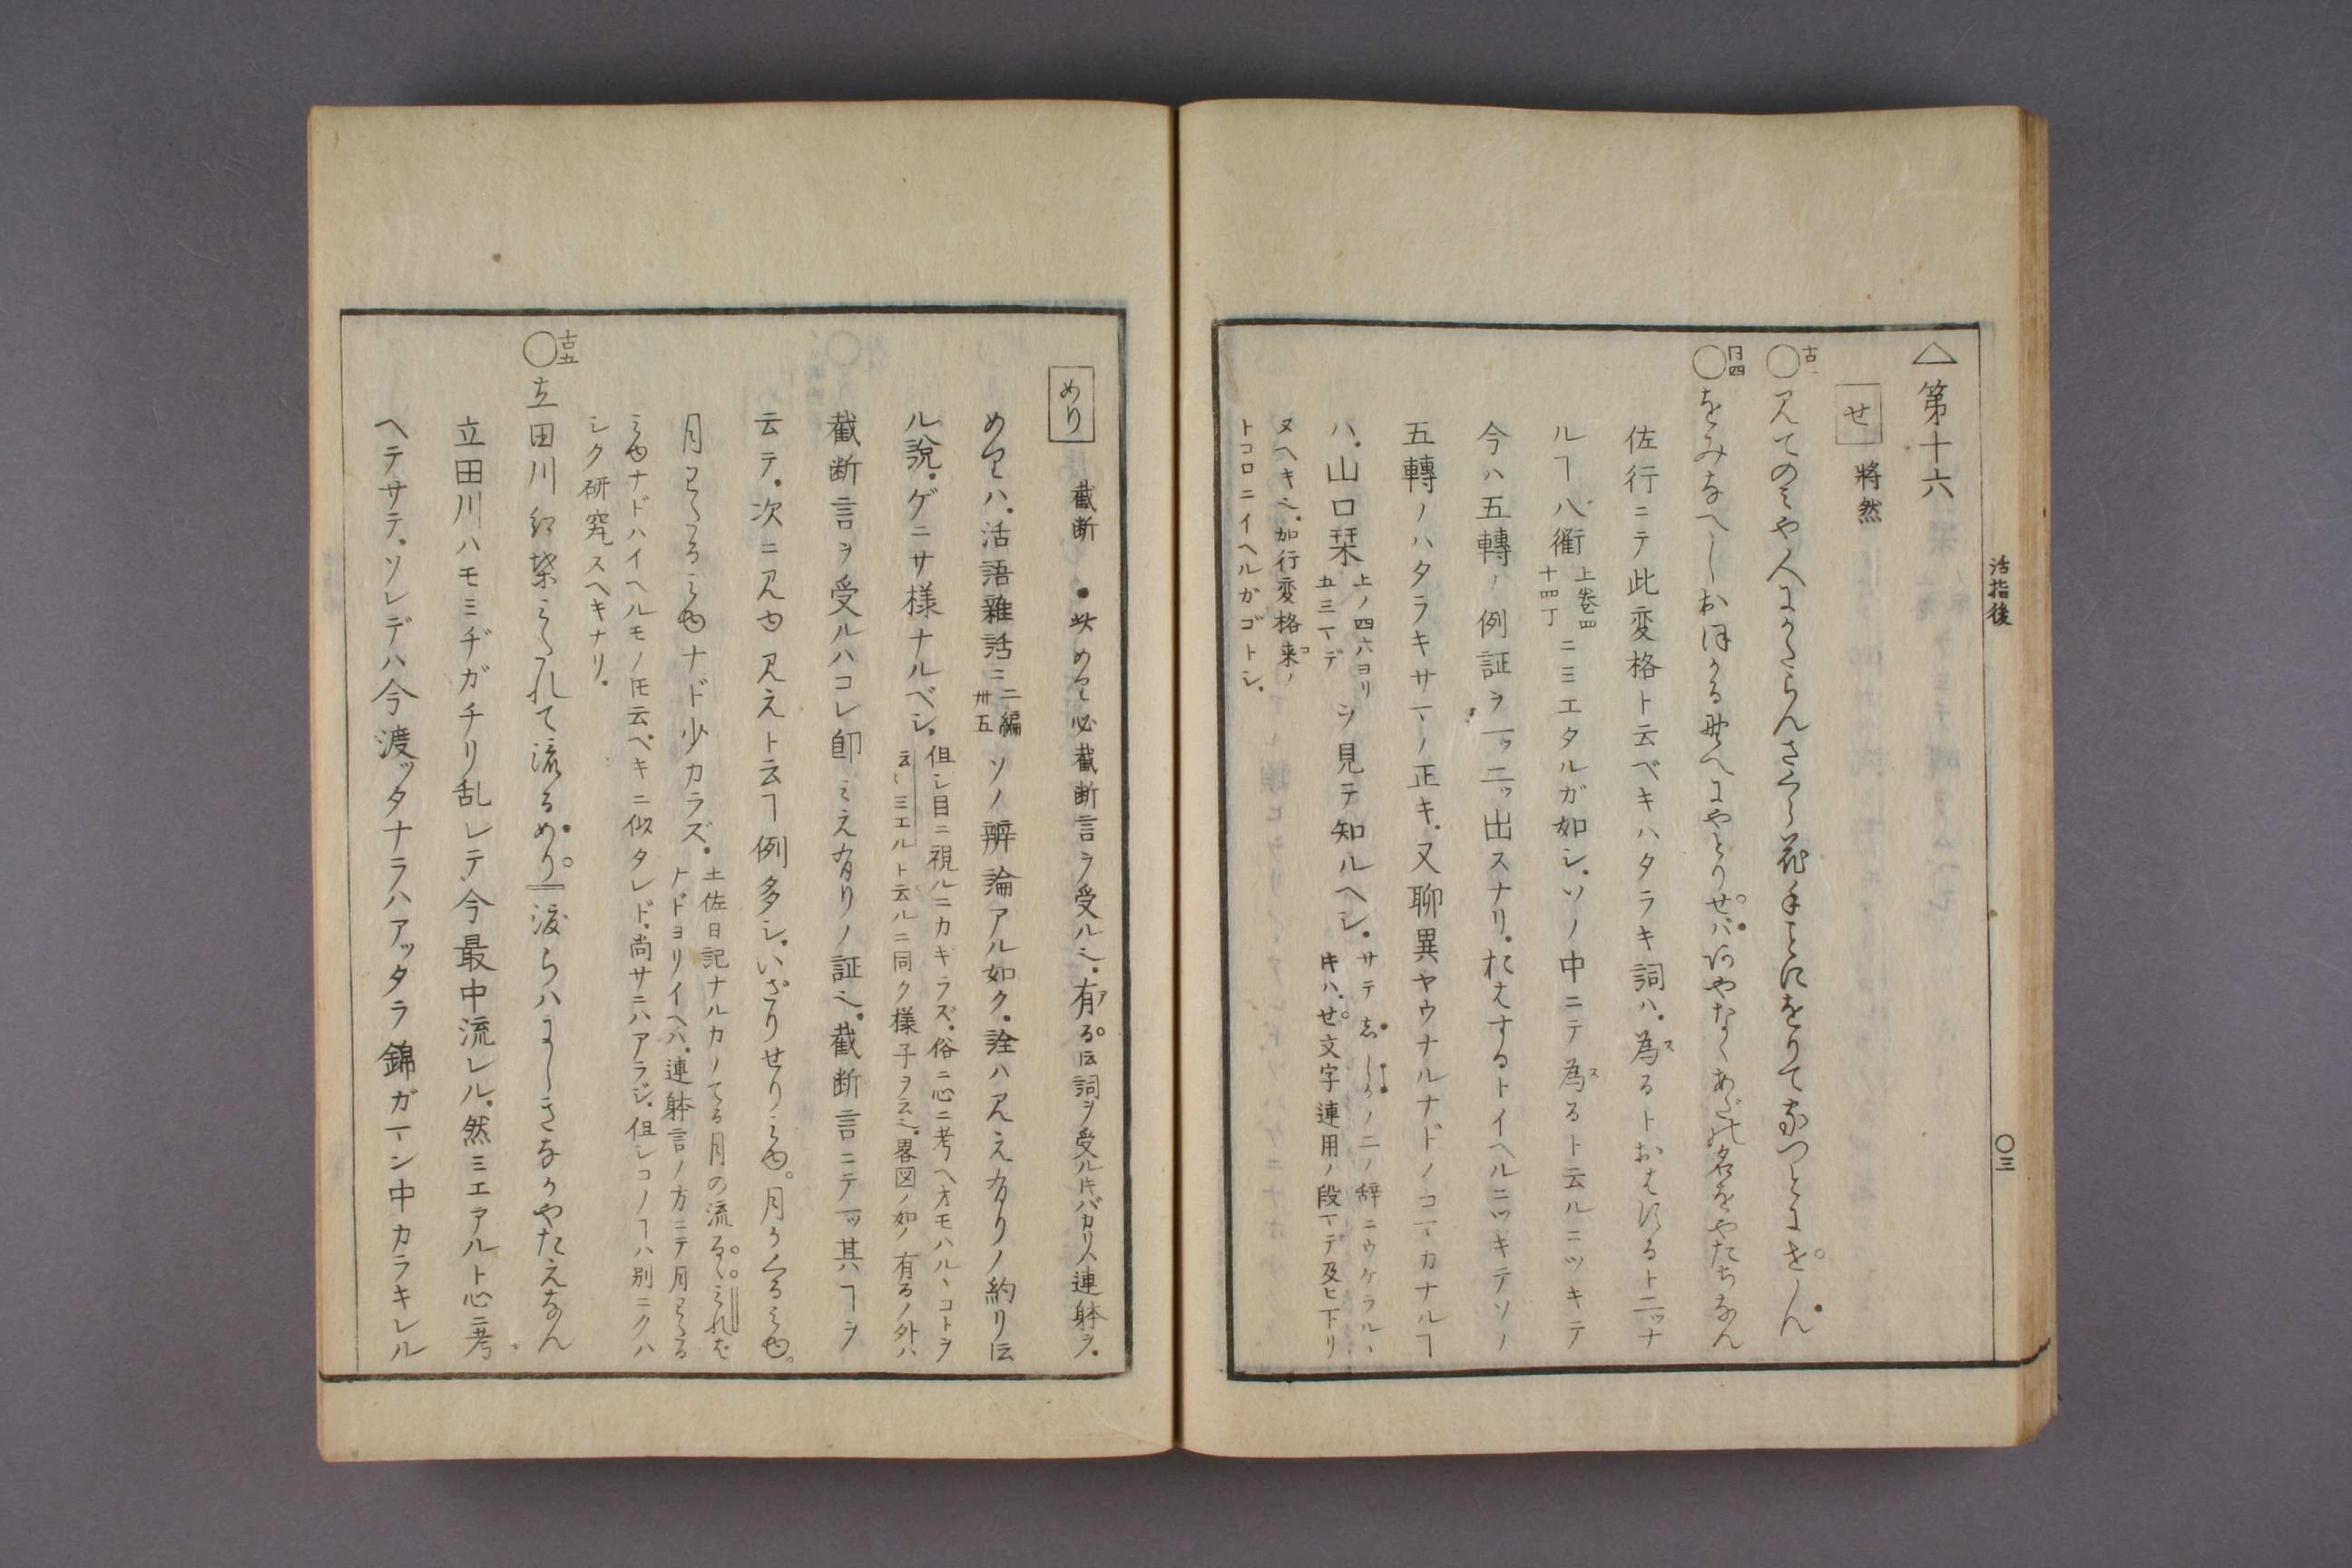 △第十六
せ 將然
○古一 見てのミや人にかたらんさくら花手ことにをりて家つとにせん
○同四 をみなへしおほかる野へにやとりせバあやなくあだの名をやたちなん
佐行ニテ此変格ト云ベキハタラキ詞ハ為るトおはするト二ッナ
ルヿ八衢 上巻四十四丁 ニミエタルガ如シ。ソノ中ニテ為るト云ルニツキテ
今ハ五轉ノ例証ヲ一ッ二ッ出スナリ。おはするトイヘルニツキテソノ
五轉ノハタラキサマノ正キ。又聊異ヤウナルナドノコマカナルヿ
ハ。山口栞 上ノ四六ヨリ五三マデ ヲ見テ知ルヘシ。サテしししかノ二ノ辞ニウケラルヽ
キハ。せ文字連用ノ段マデ及ヒ下リ
ヌヘキ也。加行変格来ノ
トコロニイヘルガゴトシ。
活指後
○三
めり 截断 ●此めり必截断言ヲ受ル也。有るト云詞ヲ受ル片バカリハ連躰ヲ。
めりハ。活語雑話ニ 二編卅五 ソノ辨論アル如ク。詮ハ見え有りノ約リト云
ル説。ゲニサ様ナルベシ。但シ目ニ視ルニカギラズ。俗ニ心ニ考ヘオモハルヽコトヲ
云々ミエルト云ルニ同ク様子ヲ云也。畧図ノ如ノ有るノ外ハ
截断言ヲ受ルハコレ即みえ有りノ証也。截断言ニテ一ッ其ハヿヲ
云テ。次ニ見ゆ見えト云ヿ例多シ。いざりせりみゆ。月かくるみゆ。
月わたるみゆナド少カラズ。土佐日記ナルカノてる月の流るゝみれば
ナドヨリイヘバ。連躰言ノ方ニテ月わたる
みゆナドハイヘルモノトモ云ベキニ似タレド。尚サニハアラジ。但シコノヿハ別ニクハ
シク研究スヘキナリ。
○古五 立田川紅葉みたれて流るめり渡らハにしきなかやたえなん
立田川ハモミヂガチリ乱レテ今最中流レル。然ミエアルト心ニ考
ヘテサテ。ソレデハ今渡ッタナラハアッタラ錦ガマン中カラキレル